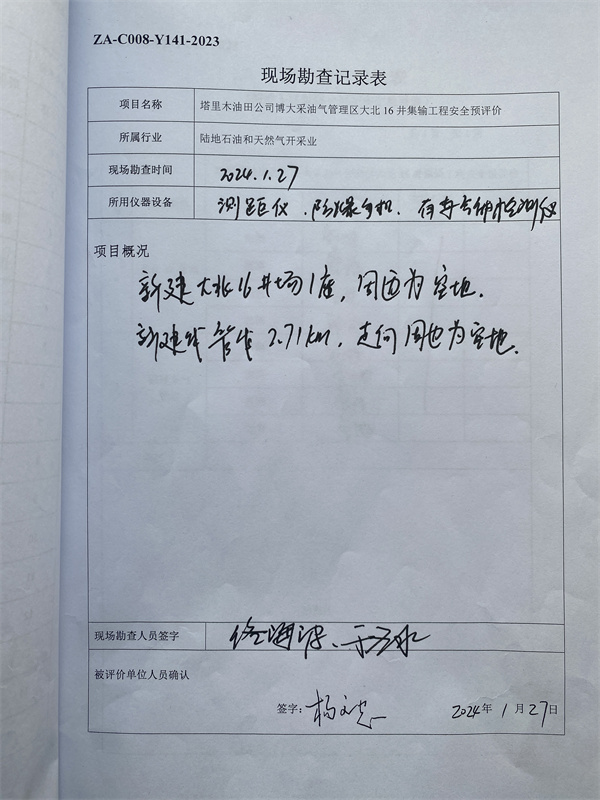 ZA-C008-Y141-2023
现场勘查记录表
项目名称 塔里木油田公司博大采油气管理区大北16井集输工程安全预评价
所属行业 陆地石油和天然气开采业
现场勘查时间 2024.1.27
所用仪器设备 测距仪、防爆手机、有毒气体检测仪
项目概况
新建大北16井场1座，周边为空地.
新建线管线2.71km，走向周边为空地.
现场勘查人员签字
被评价单位人员确认
签字：杨文忠 2024年1月27日